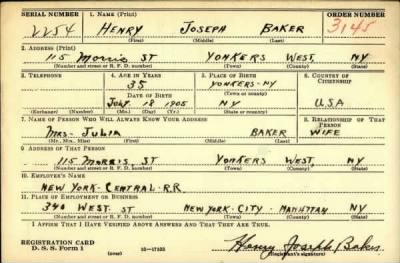 SERIAL NUMBER 1. NAME (Print) ORDER NUMBER
2254 HENRY JOSEPH BAKER 3145
(First) (Middle) (Last)
2. ADDRESS (Print)
115 Morris ST YONKERS WEST, NY
(Number and street or R. F. D. number) (Town) (County) (State)
3. TELEPHONE 4. AGE IN YEARS 5. PLACE OF BIRTH 6. COUNTRY OF CITIZENSHIP
35 YONKERS-NY
DATE OF BIRTH (Town or county)
JULY 18 1905 NY USA
(Exchange) (Number) (Mo.) (Day) (Yr.) (State or country)
7. NAME OF PERSON WHO WILL ALWAYS KNOW YOUR ADDRESS 8. RELATIONSHIP OF THAT PERSON
MRS- JULIA BAKER WIFE
(Mr., Mrs., Miss) (First) (Middle) (Last)
9. ADDRESS OF THAT PERSON
115 MORRIS ST YONKERS WEST, NY
(Number and street or R. F. D. number) (Town) (County) (State)
10. EMPLOYER'S NAME
NEW YORK- CENTRAL-R.R.
11. PLACE OF EMPLOYMENT OR BUSINESS
340 WEST ST NEW YORK-CITY- MANHTTAN NY
(Number and street or R. F. D. number) (Town) (County) (State)
I AFFIRM THAT I HAVE VERIFIED ABOVE ANSWERS AND THAT THEY ARE TRUE.
REGISTRATION CARD
D. S. S. Form 1 (over) 16-17105 Henry Joseph Baker
(Registrant's signature)